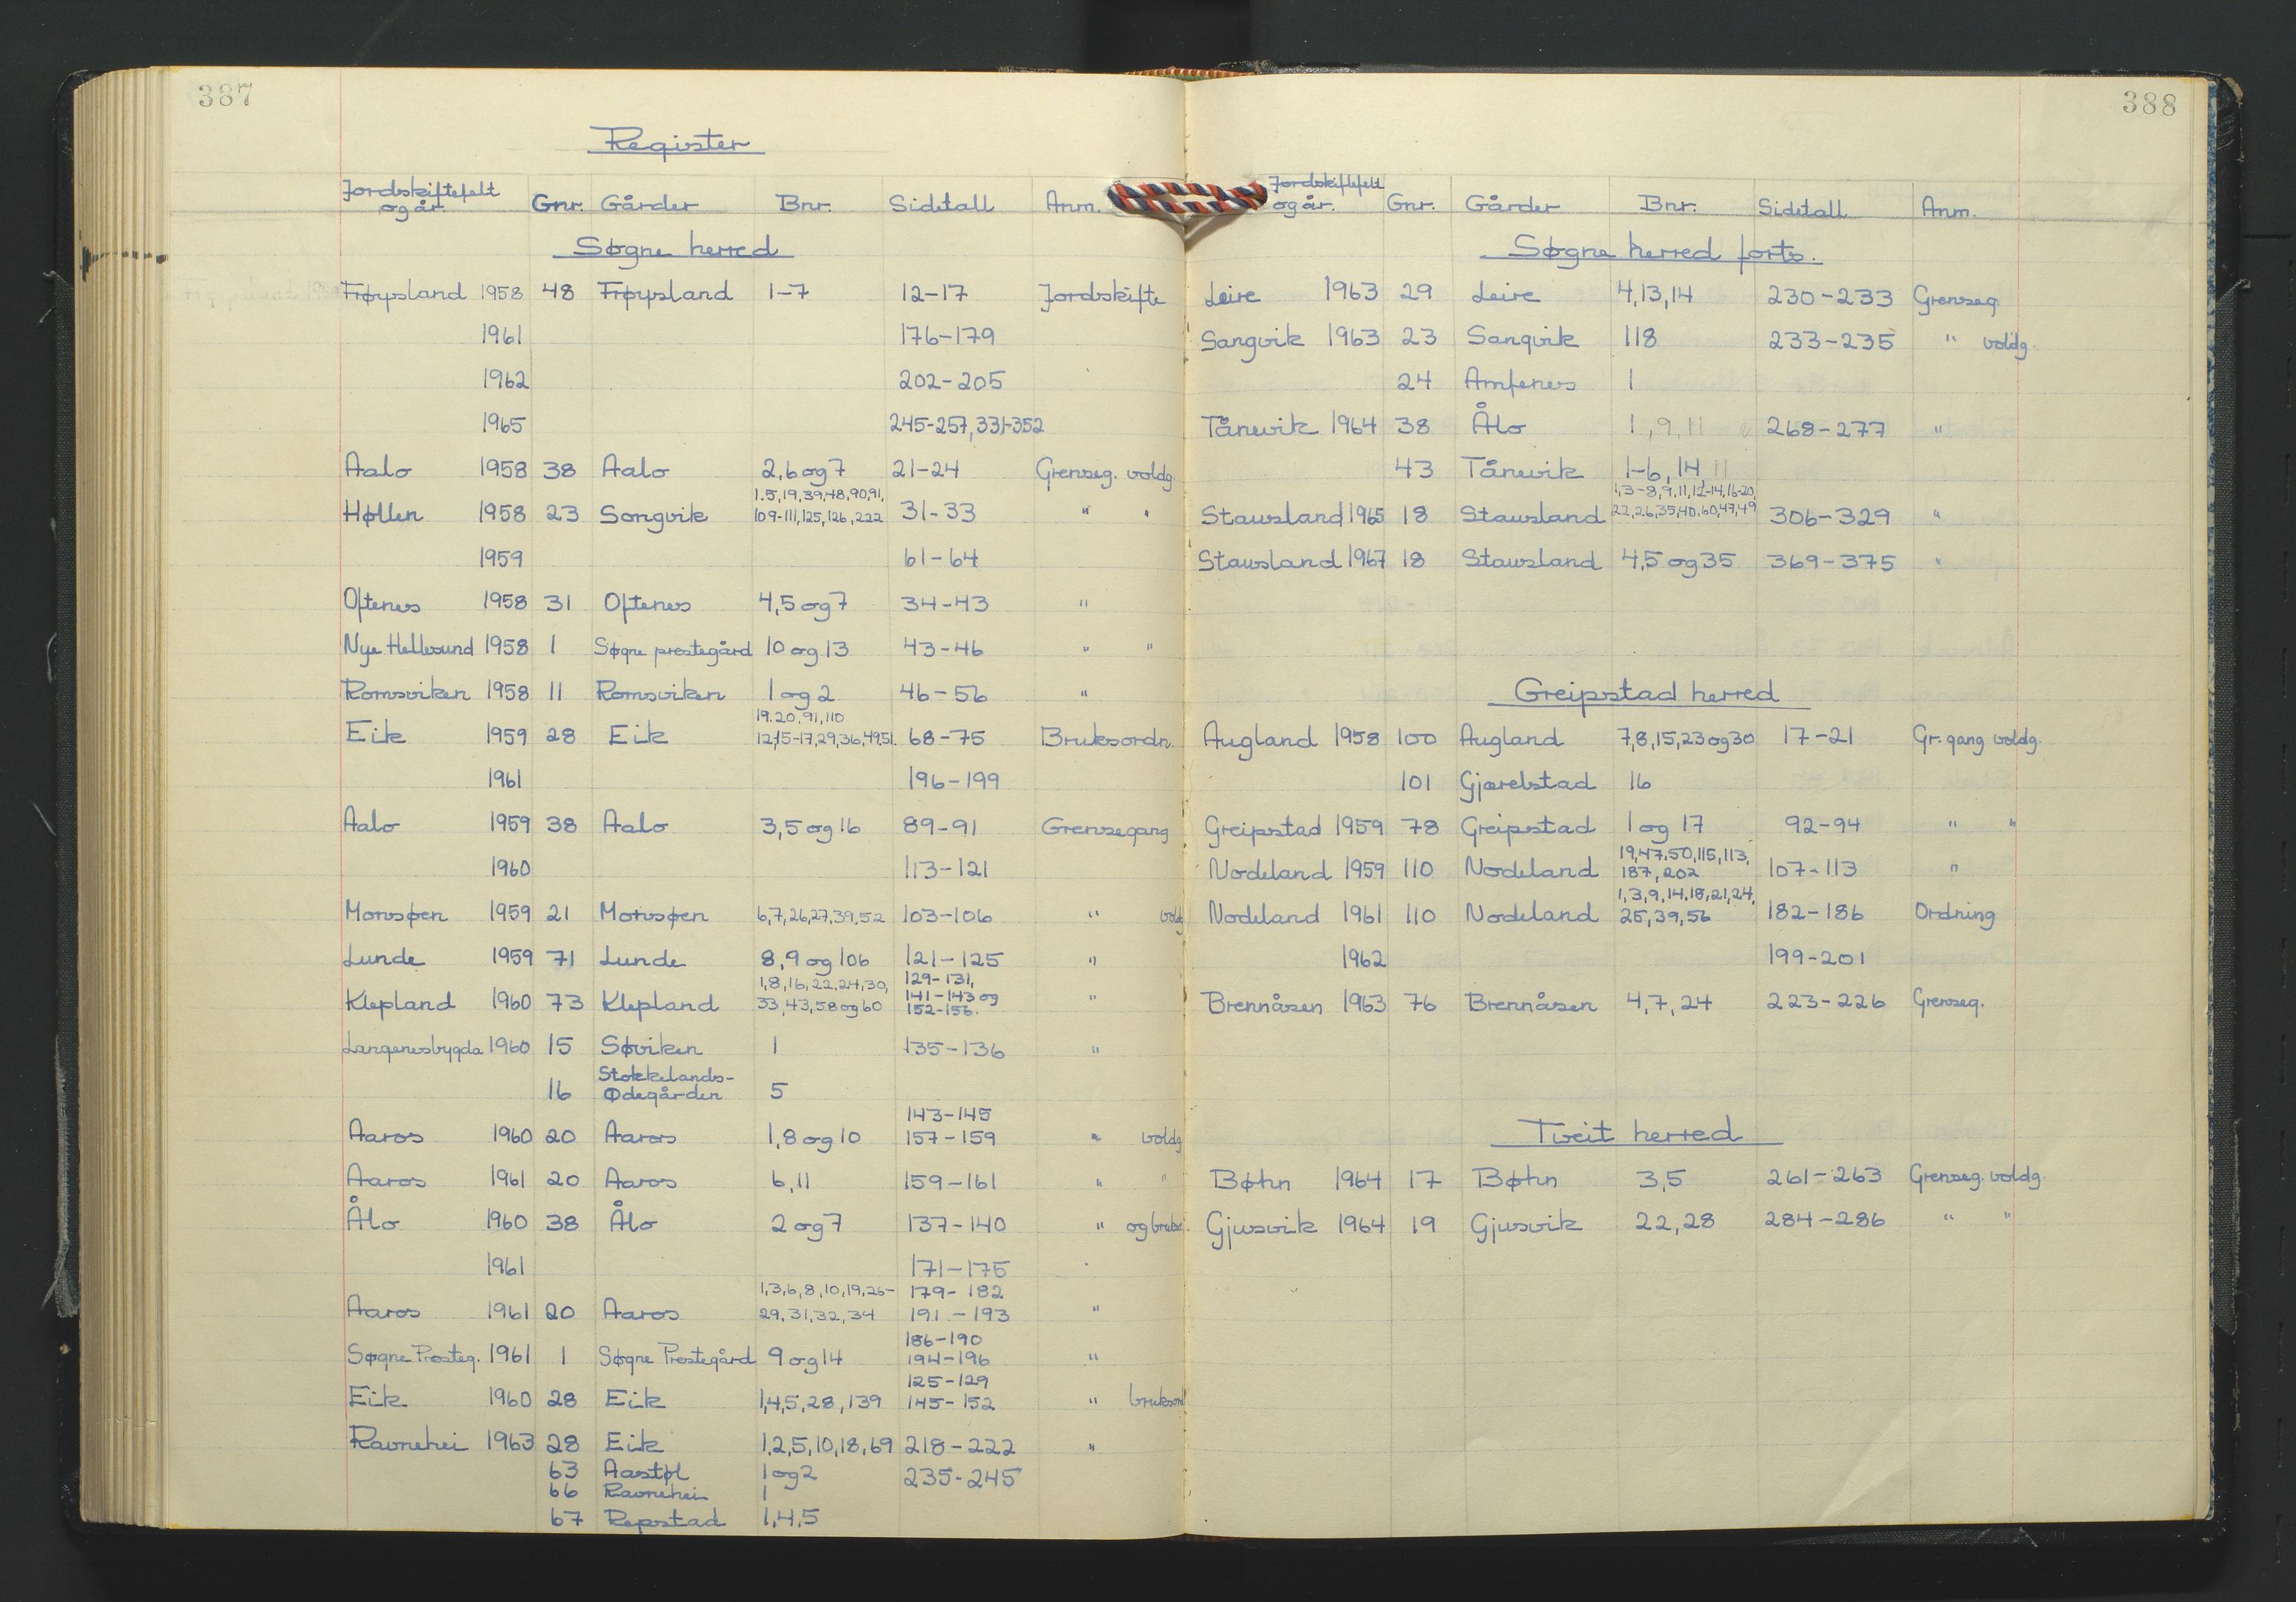 387
Register
Jordskiftefelt og år. Gnr. Gårder Bnr. Sidetall Anm.
Søgne herred
Frøysland 1958 48 Frøysland 1-7 12-17 Jordskifte
1961 176-179
1962 202-205
1965 245-257, 331-352
Aalo 1958 38 Aalo 2,6 og 7 21-24 Grenseg. voldg.
1.5,19,39,48,90,91,
Høllen 1958 23 Songvik 109-111,125,126,222 31-33 " "
1959 61-64
Oftenes 1958 31 Oftenes 4,5 og 7 34-43 "
Nye Hellesund 1958 1 Søgne prestegård 10 og 13 43-46 " "
Romsviken 1958 11 Romsviken 1 og 2 46-56 "
19.20,91,110
Eik 1959 28 Eik 12,15-17,29,36,49,51. 68-75 Bruksordn.
1961 196-199
Aalo 1959 38 Aalo 3,5 og 16 89-91 Grensegang
1960 113-121
Monsøen 1959 21 Monsøen 6,7,26,27,39,52 103-106 " voldg
Lunde 1959 71 Lunde 8,9 og 106 121-125 "
1,8,16,22,24,30, 129-131,
Klepland 1960 73 Klepland 33,43,58 og 60 141-143 og "
152-156.
Langenesbygda 1960 15 Søviken 1 135-136 "
16 Stokkelands-
Ødegården 5
143-145
Aaros 1960 20 Aaros 1,8 og 10 157-159 " voldg
Aaros 1961 20 Aaros 6,11 159-161 " "
Ålo 1960 38 Ålo 2 og 7 137-140 " og bruks.
1961 171-175
1,3,6,8,10,19,26- 179-182
Aaros 1961 20 Aaros 29,31,32,34 191-193 "
186-190
Søgne Presteg. 1961 1 Søgne Prestegård 9 og 14 194-196 "
125-129
Eik 1960 28 Eik 1,4,5,28,139 145-152 " bruksord
Ravnehei 1963 28 Eik 1,2,5,10,18,69 218-222 "
63 Aastøl 1 og 2 235-245
66 Ravnehei 1
67 Repstad 1,4,5
388
Jordskiftefelt og år. Gnr. Gårder Bnr. Sidetall Anm.
Søgne herred forts.
Leire 1963 29 Leire 4,13,14 230-233 Grenseg.
Sangvik 1963 23 Sangvik 118 233-235 " voldg.
24 Amfenes 1
Tånevik 1964 38 Ålo 1,9,11 268-277 "
43 Tånevik 1-6,14,11
1,3-8,9,11,12-14,16-20,
Stausland 1965 18 Stausland 22,26,35,40,60,47,49 306-329 "
Stausland 1967 18 Stausland 4,5 og 35 369-375 "
Greipstad herred
Augland 1958 100 Augland 7,8,15,23 og 30 17-21 Gr. gang voldg.
101 Gjærelstad 16
Greipstad 1959 78 Greipstad 1 og 17 92-94 " "
19,47,50,115,113,
Nodeland 1959 110 Nodeland 187,202 107-113 "
1,3,9,14,18,21,24,
Nodeland 1961 110 Nodeland 25,39,56 182-186 Ordning
1962 199-201
Brennåsen 1963 76 Brennåsen 4,7,24 223-226 Grenseg.
Tveit herred
Bøhn 1964 17 Bøhn 3,5 261-263 Grenseg. voldg.
Gjusvik 1964 19 Gjusvik 22,28 284-286 " "